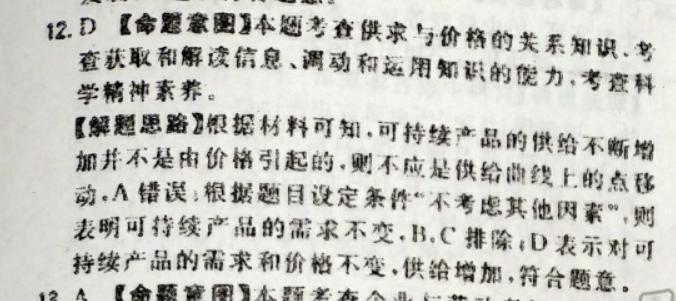 12. D 【命题意图】本题考查供求与价格的关系知识,考
查获取和解读信息、调动和运用知识的能力,考查科
学精神素养。
【解题思路】根据材料可知,可持续产品的供给不断增
加并不是由价格引起的,则不应是供给曲线上的点移
动,A 错误;根据题目设定条件“不考虑其他因素”,则
表明可持续产品的需求不变,B、C 排除;D 表示对可
持续产品的需求和价格不变,供给增加,符合题意。
13. A 【命题意图】本题考查企业与劳动